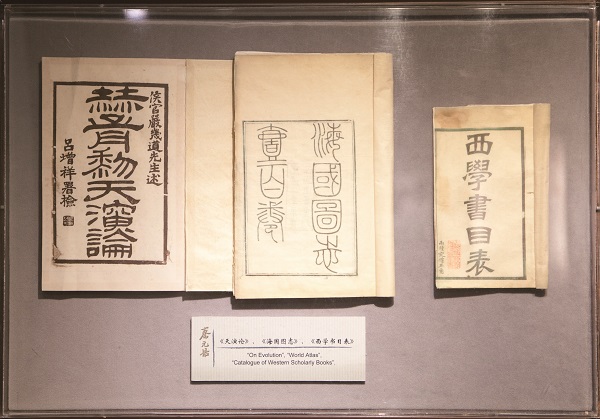 侯官嚴幾道先生述
赫胥黎天演論
呂增祥署檢
海國圖志
壹百卷
西學書目表
蔡元培
《天演论》、《海国图志》、《西学书目表》
"On Evolution", "World Atlas",
"Catalogue of Western Scholarly Books".